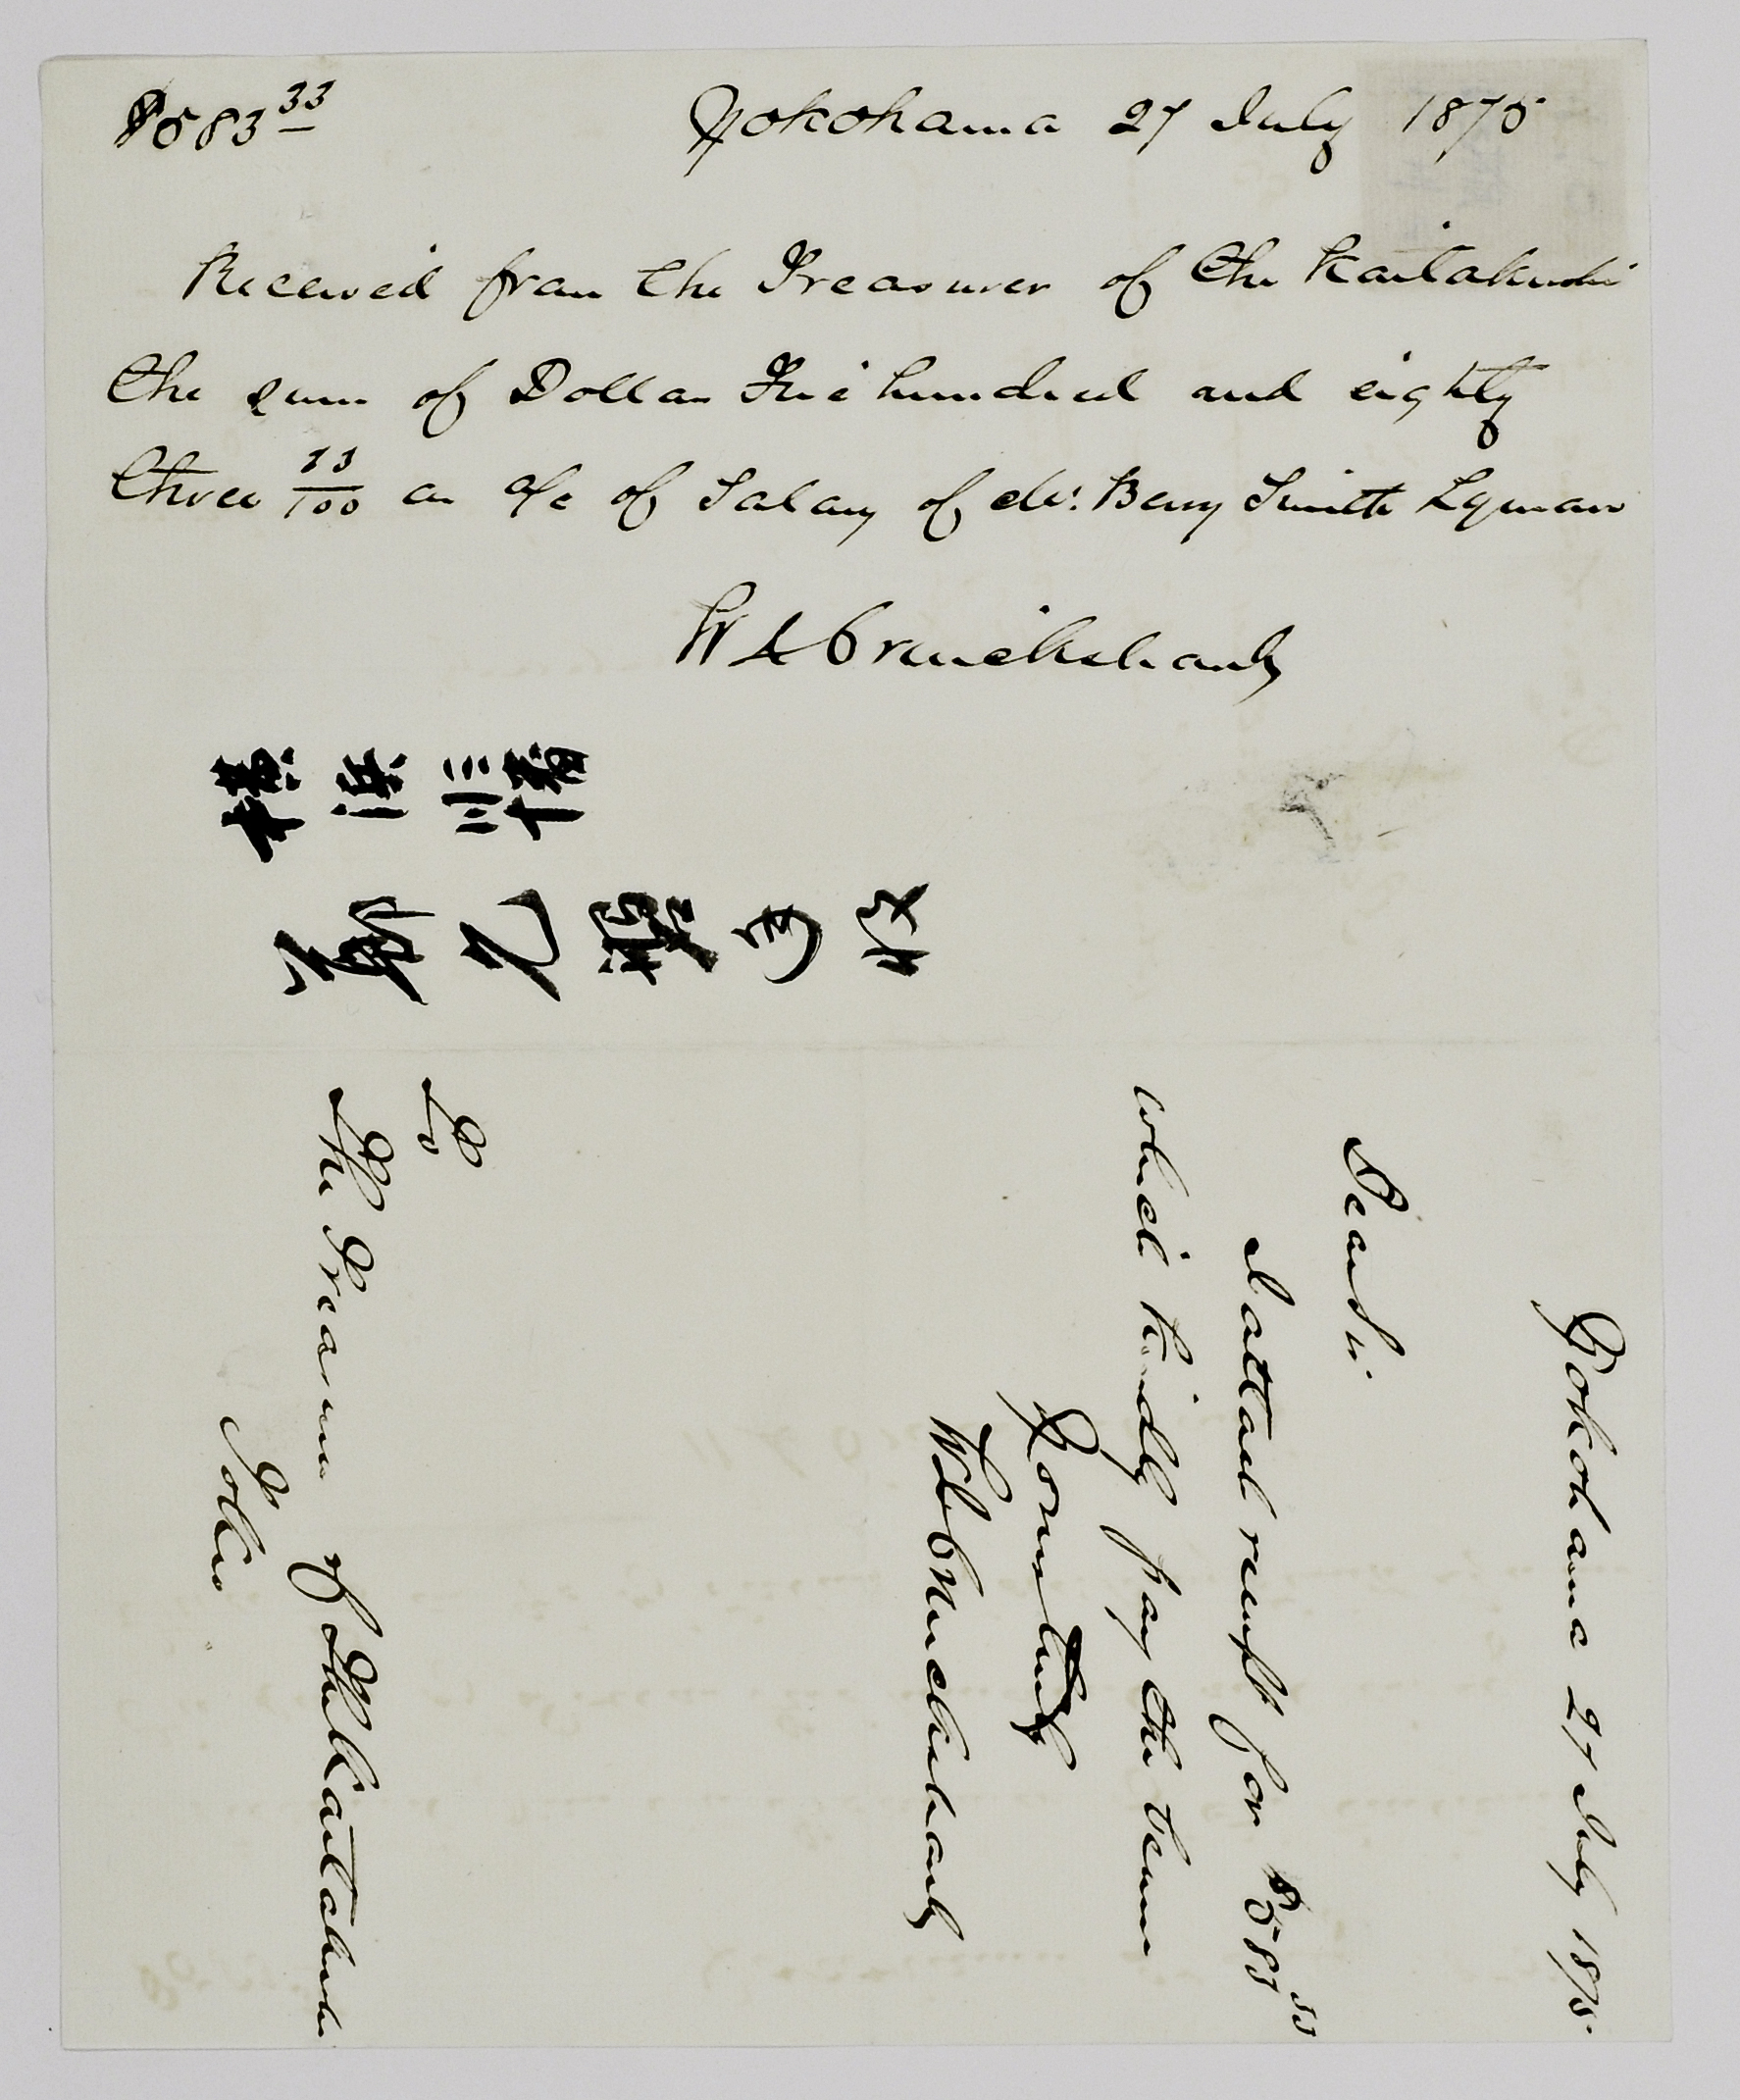 $583 33 Yokohama 27 July 1875
Received from the Treasurer of the Kaitakushi
the sum of Dollars Five hundred and eighty
three 33/100 on a/c of Salary of Mr. Benj Smith Lyman
W L Cruickshank
横浜
Yokohama 27 July 1875
Dear Sir
I attach receipt for $583 33
which kindly pay the bearer
Yours truly
W L Cruickshank
To
The Treasurer of The Kaitakushi
Tokio